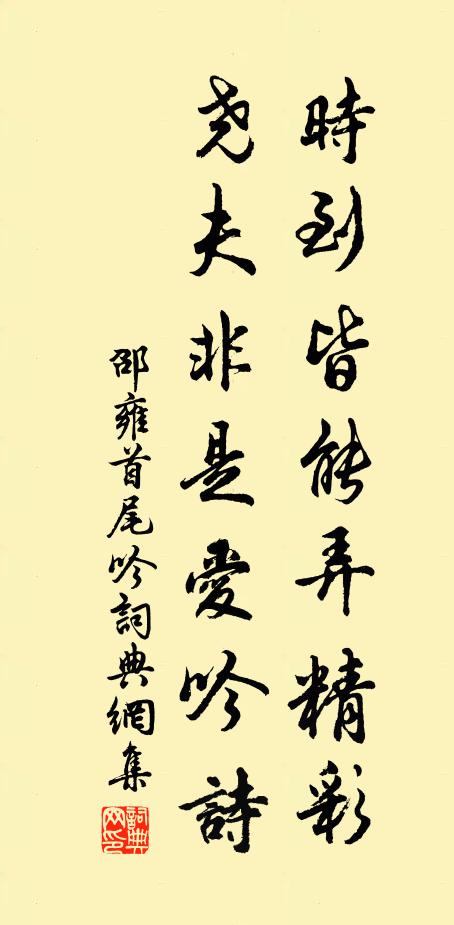 時到皆能弄精彩
尧夫非是愛吟詩
邵雍首尾吟詞典網集
詞典网印